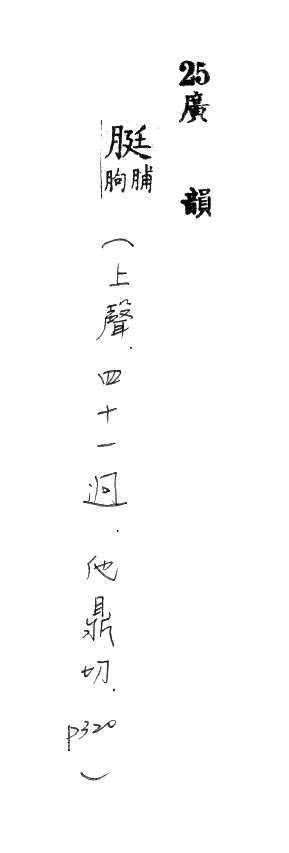 25廣韻
脡脯朐(上聲.四十一迥.他鼎切.p320)